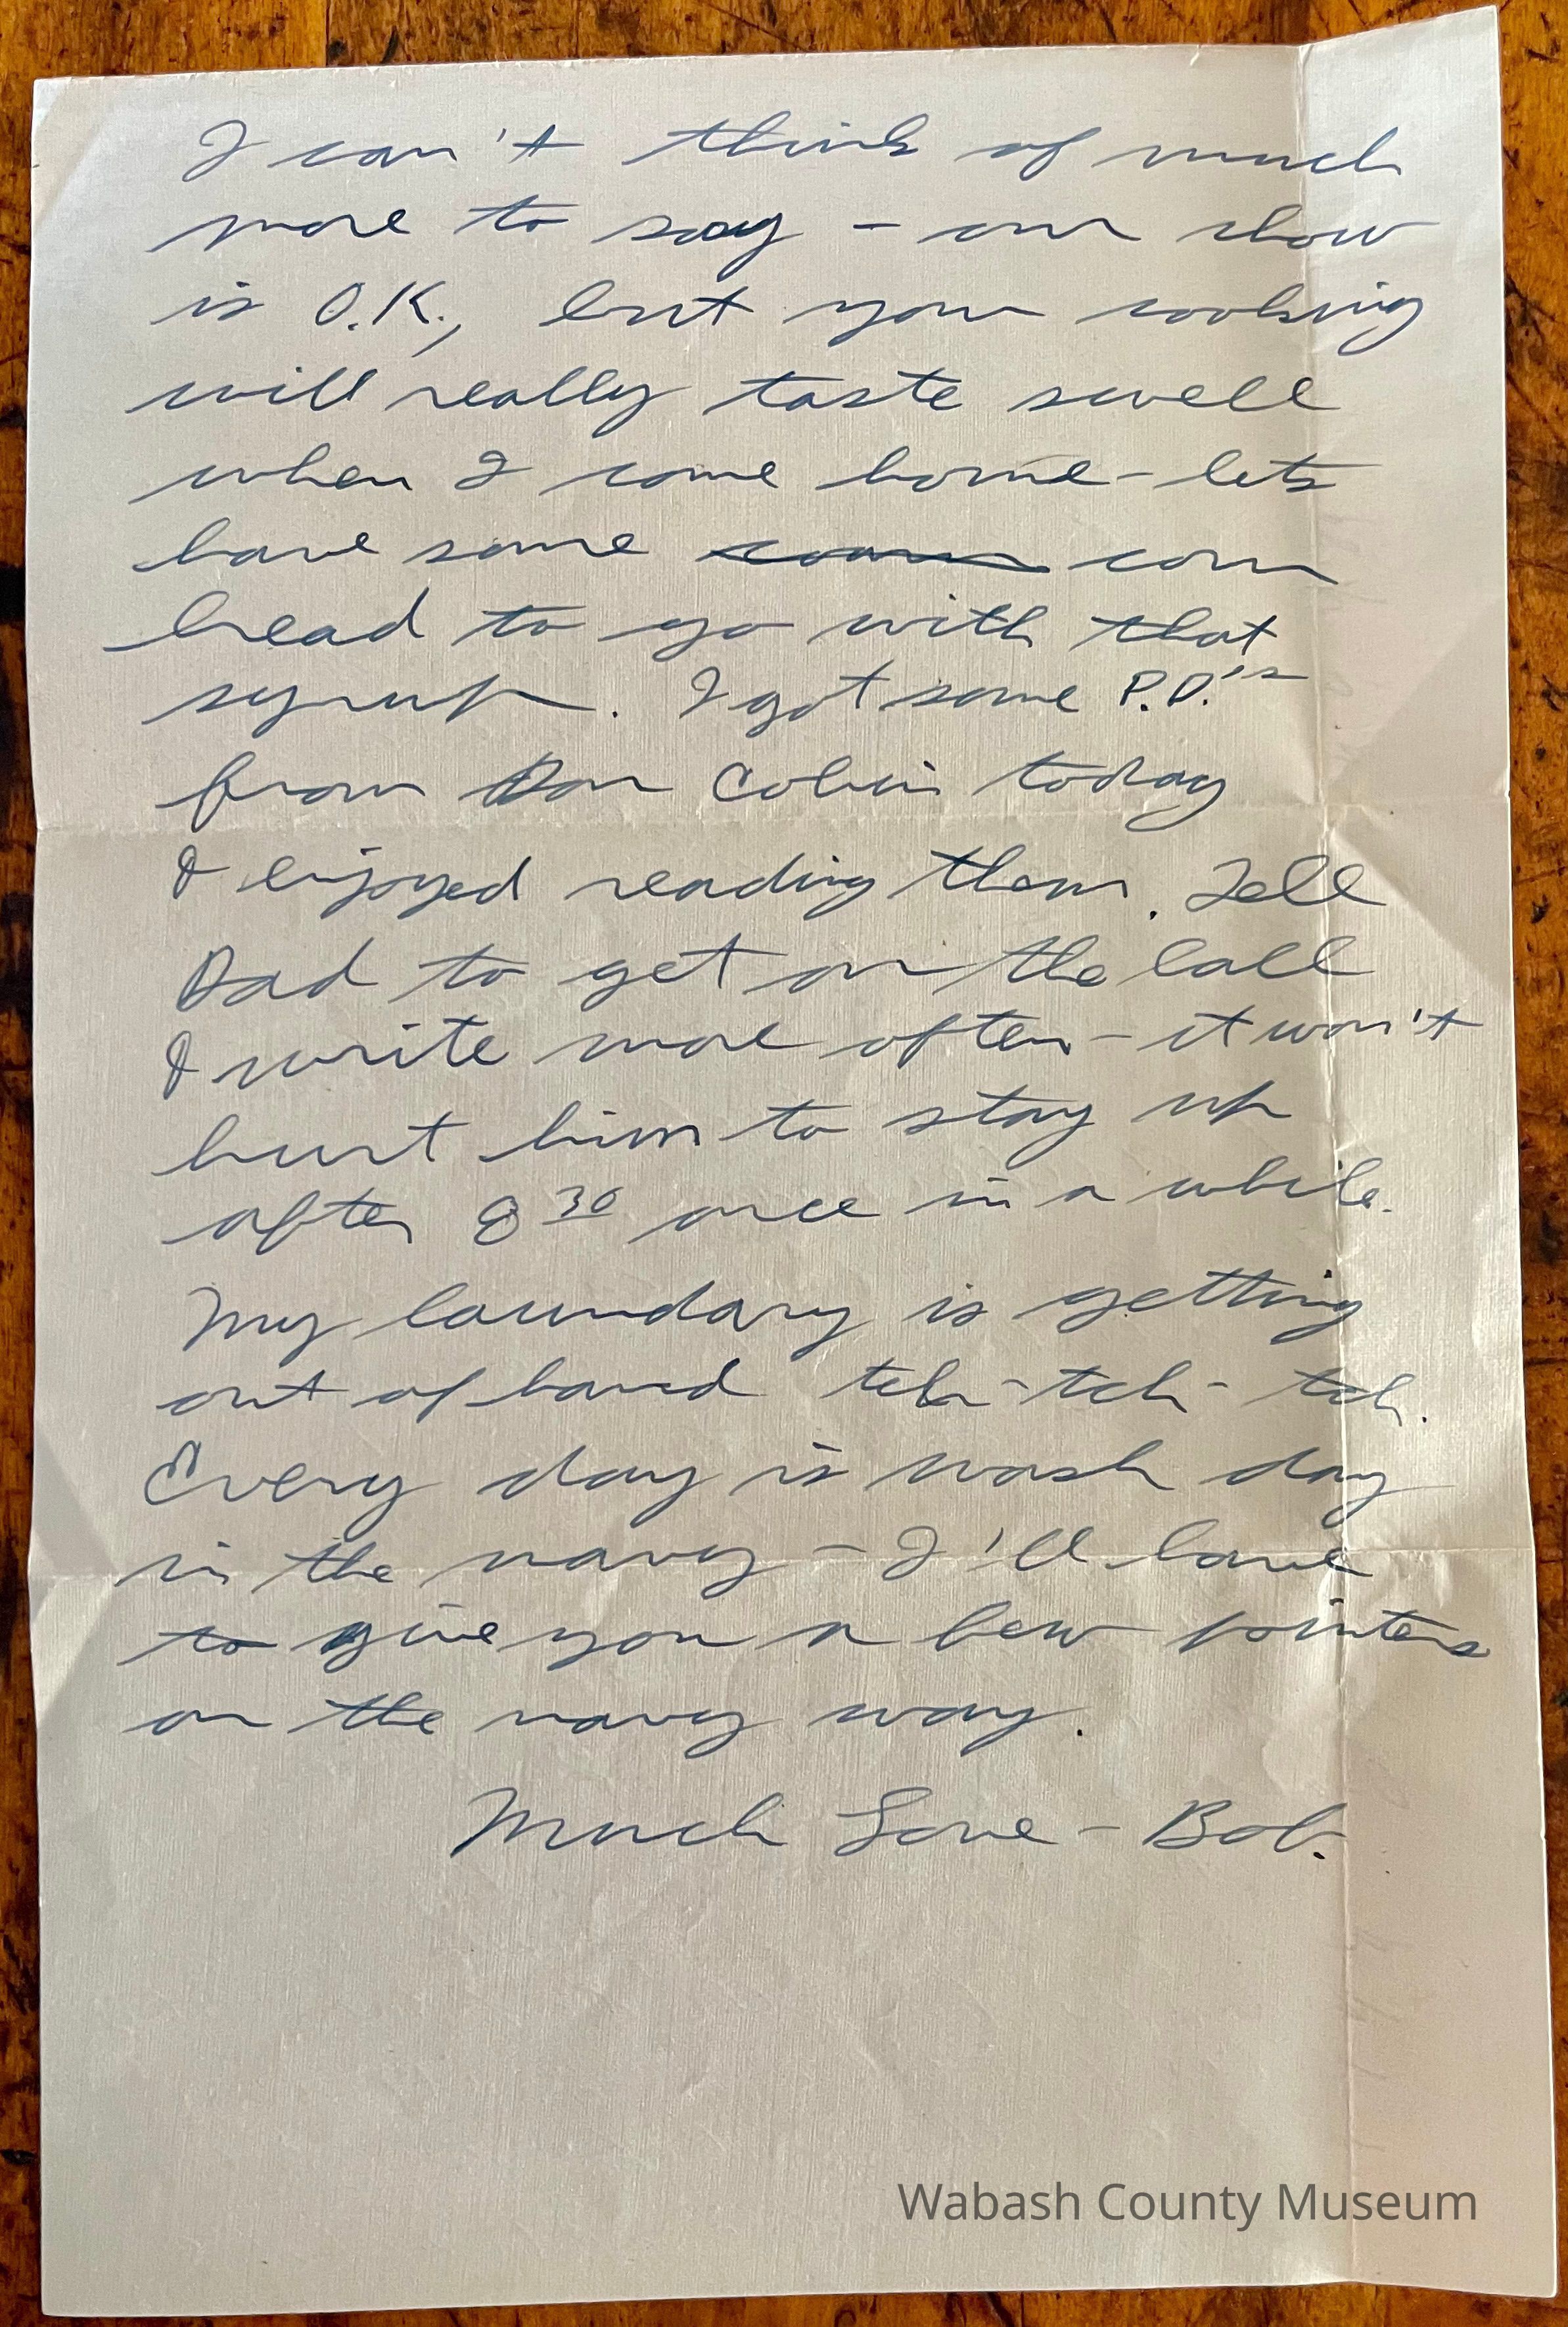 I can't think of much
more to say - our chow
is O.K., but your cooking
will really taste swell
when I come home - lets
have some corn
bread to go with that
syrup. I got some P.D.'s
from Don
today
& enjoyed reading them. Tell
Dad to get on the ball
& write more often - it won't
hurt him to stay up
after 8 30 once in a while.
My laundary is getting
out of hand tch - tch - tch.
Every day is wash day
in the navy - I'll have
to give you a few pointers
on the navy way.
Much Love - Bob.
Wabash County Museum